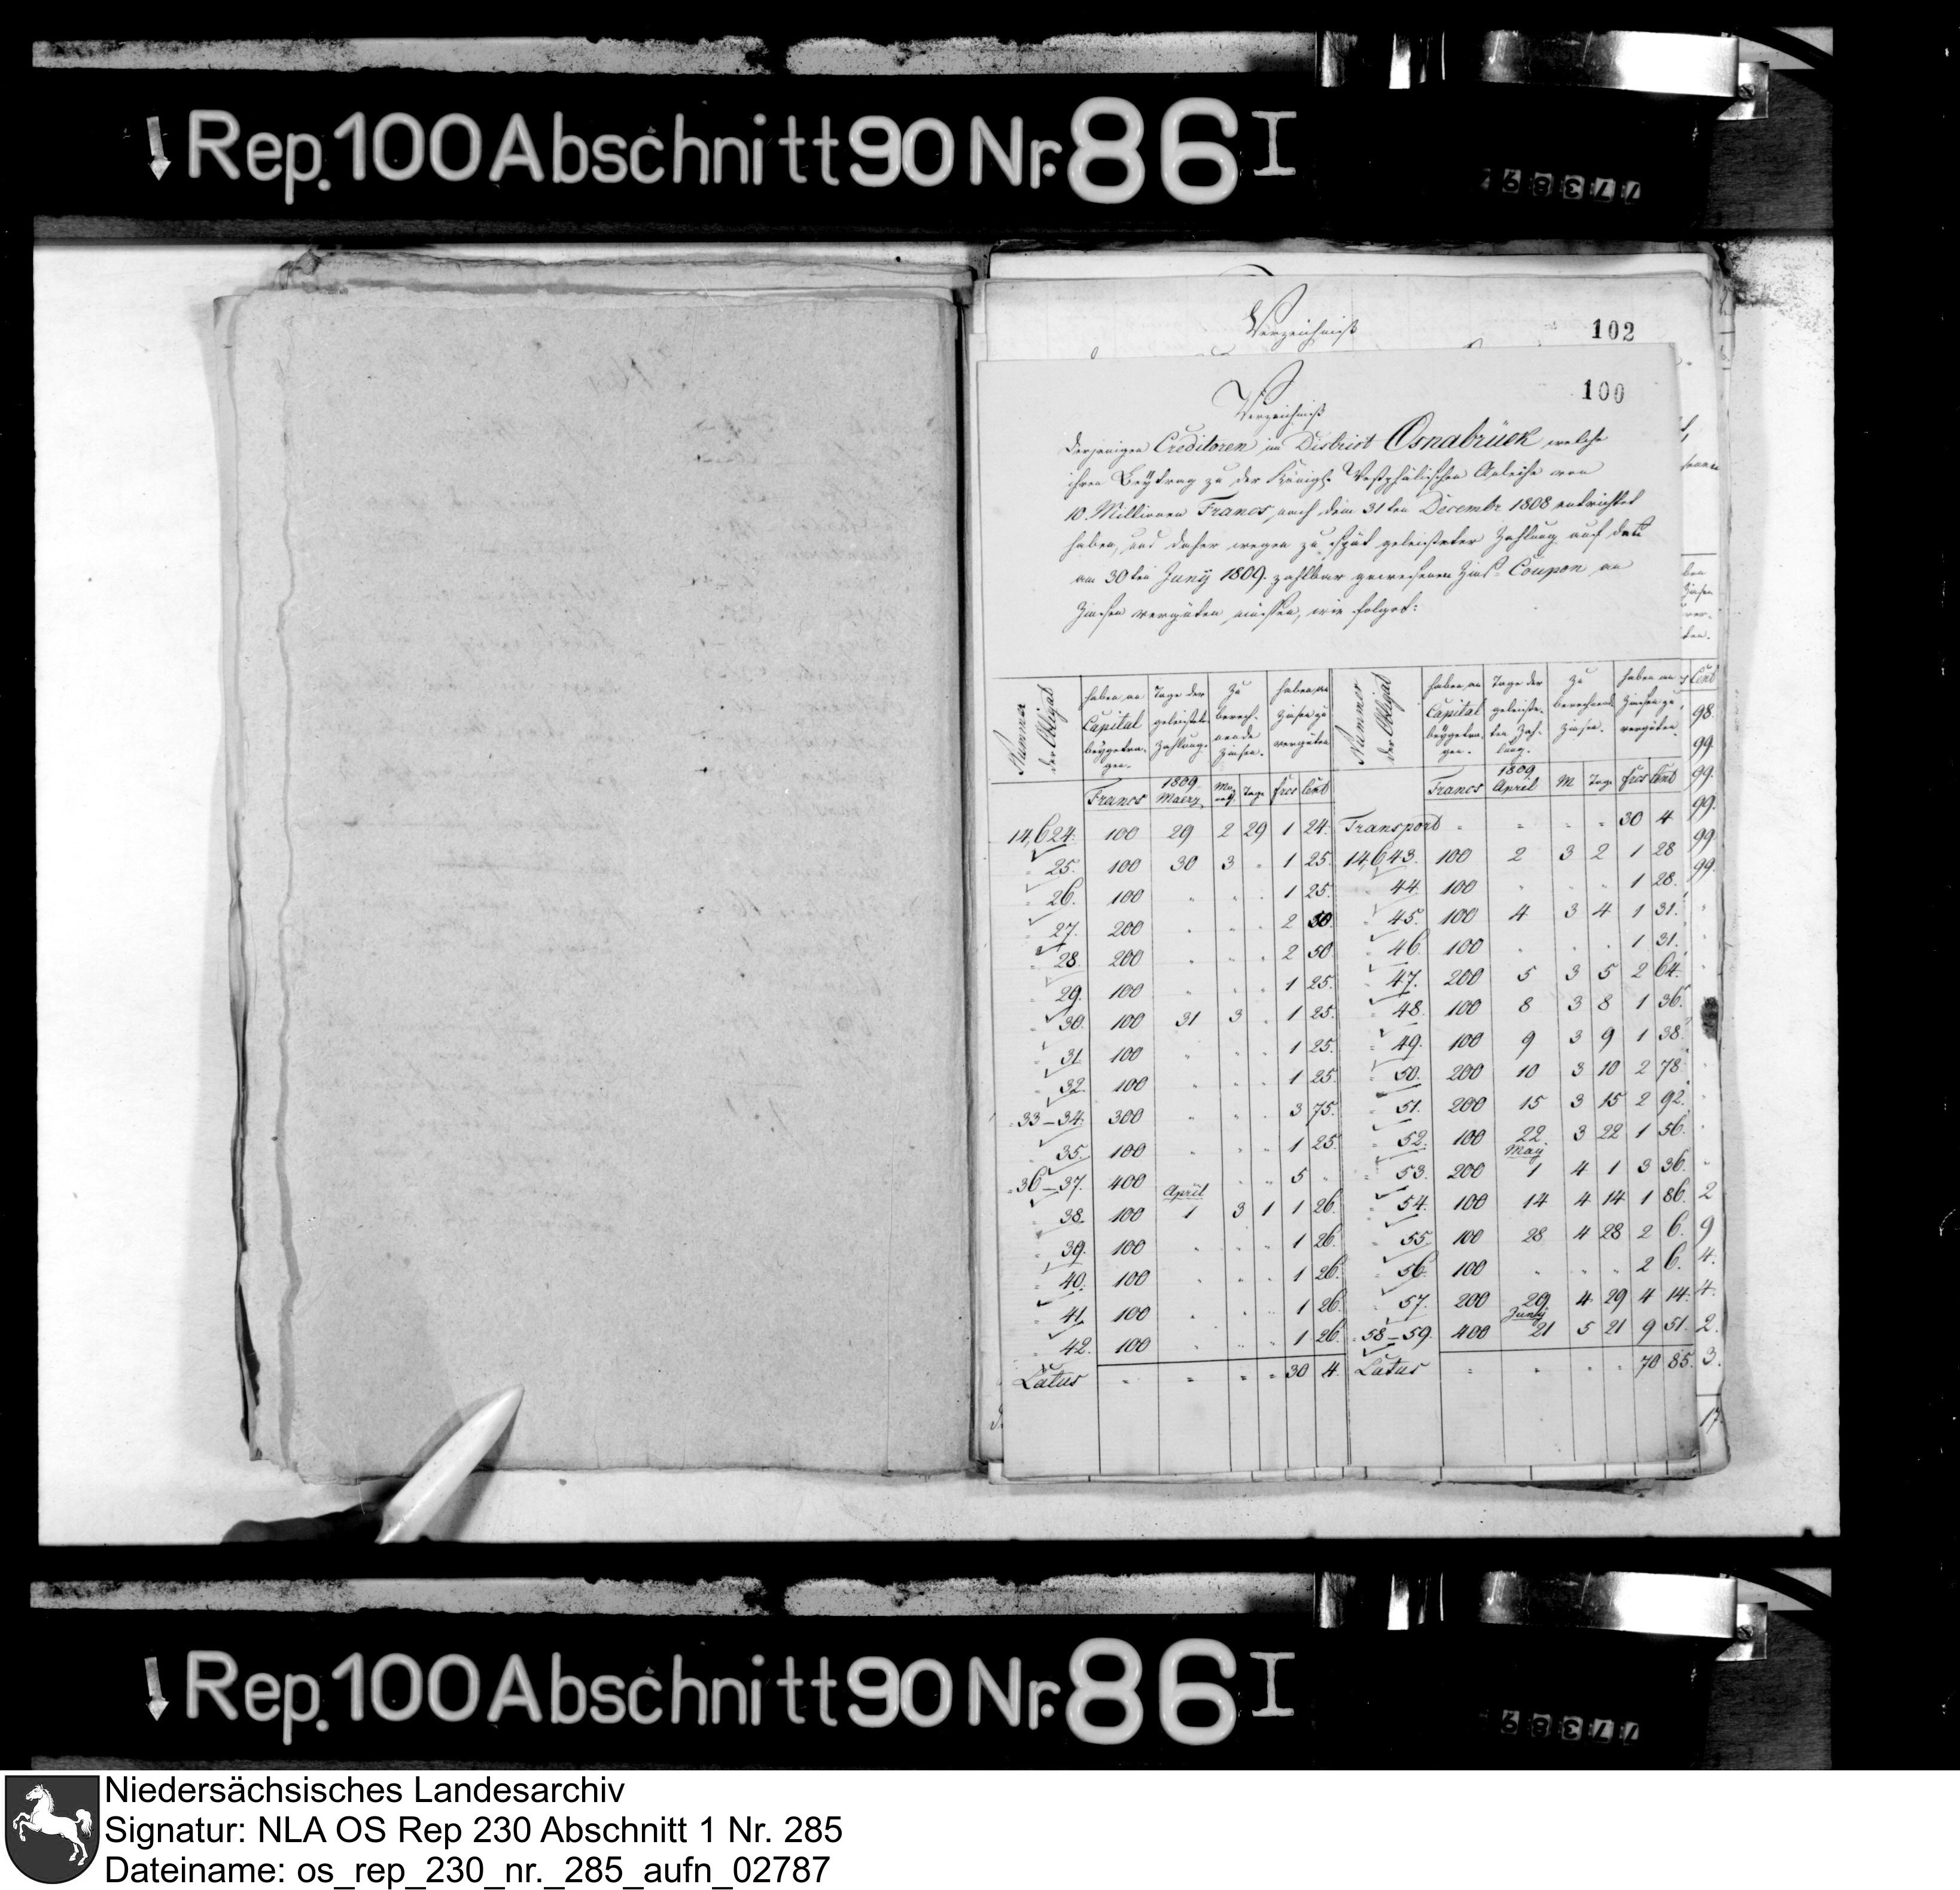 Rep. 100 Abschnitt 90 Nr. 86 I
77389
Verzeichniß
102
100
Verzeichniß
derjenigen Creditoren im District Osnabrück, welche
ihren Beytrag zu der Königl. Westphälischen Anleihe von
10 Millionen Francs, nach dem 31ten Decembr 1808 entrichtet
haben, und daher wegen zu spät geleisteter Zahlung auf den
am 30ten Juny 1809. zahlbar gewesenen Zins-Coupon an
Zinsen vergüten müssen, wie folget:
Nummer der Obligat | haben an Capital beygetragen. | Tage der geleisteten Zahlung. | Zu berechnende Zinsen. | haben an Zinsen zu vergüten | Nummer der Obligat | haben an Capital beygetragen. | Tage der geleisteten Zahlung. | Zu berechnend Zinsen. | haben an Zinsen zu vergüten.
Francs | 1809 Maerz | Monath | Tage | frcs | Cent | Francs | 1809 April | M | Tage | frcs | Cent
14,624. 100 29 2 29 1 24. Transport " " " " 30 4
" 25. 100 30 3 " 1 25. 14,643. 100 2 3 2 1 28
" 26. 100 " " " 1 25. " 44. 100 " " " 1 28.
" 27. 200 " " " 2 50. " 45. 100 4 3 4 1 31.
" 28. 200 " " " 2 50. " 46. 100 " " " 1 31.
" 29. 100 " " " 1 25. " 47. 200 5 3 5 2 64.
" 30. 100 31 3 " 1 25. " 48. 100 8 3 8 1 36.
" 31. 100 " " " 1 25. " 49. 100 9 3 9 1 38.
" 32. 100 " " " 1 25. " 50. 200 10 3 10 2 78.
" 33–34. 300 " " " 3 75. " 51. 200 15 3 15 2 92.
" 35. 100 " " " 1 25. " 52. 100 22. 3 22 1 56.
May
" 36–37. 400 " " " 5 " " 53. 200 1 4 1 3 36.
April
" 38. 100 1 3 1 1 26. " 54. 100 14 4 14 1 86.
" 39. 100 " " " 1 26. " 55. 100 28 4 28 2 6.
" 40. 100 " " " 1 26. " 56. 100 " " " 2 6.
" 41. 100 " " " 1 26. " 57. 200 29 4 29 4 14.
Juny
" 42. 100 " " " 1 26. " 58–59. 400 21 5 21 9 51.
Latus " " " " 30 4. Latus " " " " 70 85.
Cent
98.
99.
99.
99.
99.
99.
2
9
4.
4.
2.
3.
17.
Rep. 100 Abschnitt 90 Nr. 86 I
77389
Niedersächsisches Landesarchiv
Signatur: NLA OS Rep 230 Abschnitt 1 Nr. 285
Dateiname: os_rep_230_nr._285_aufn_02787